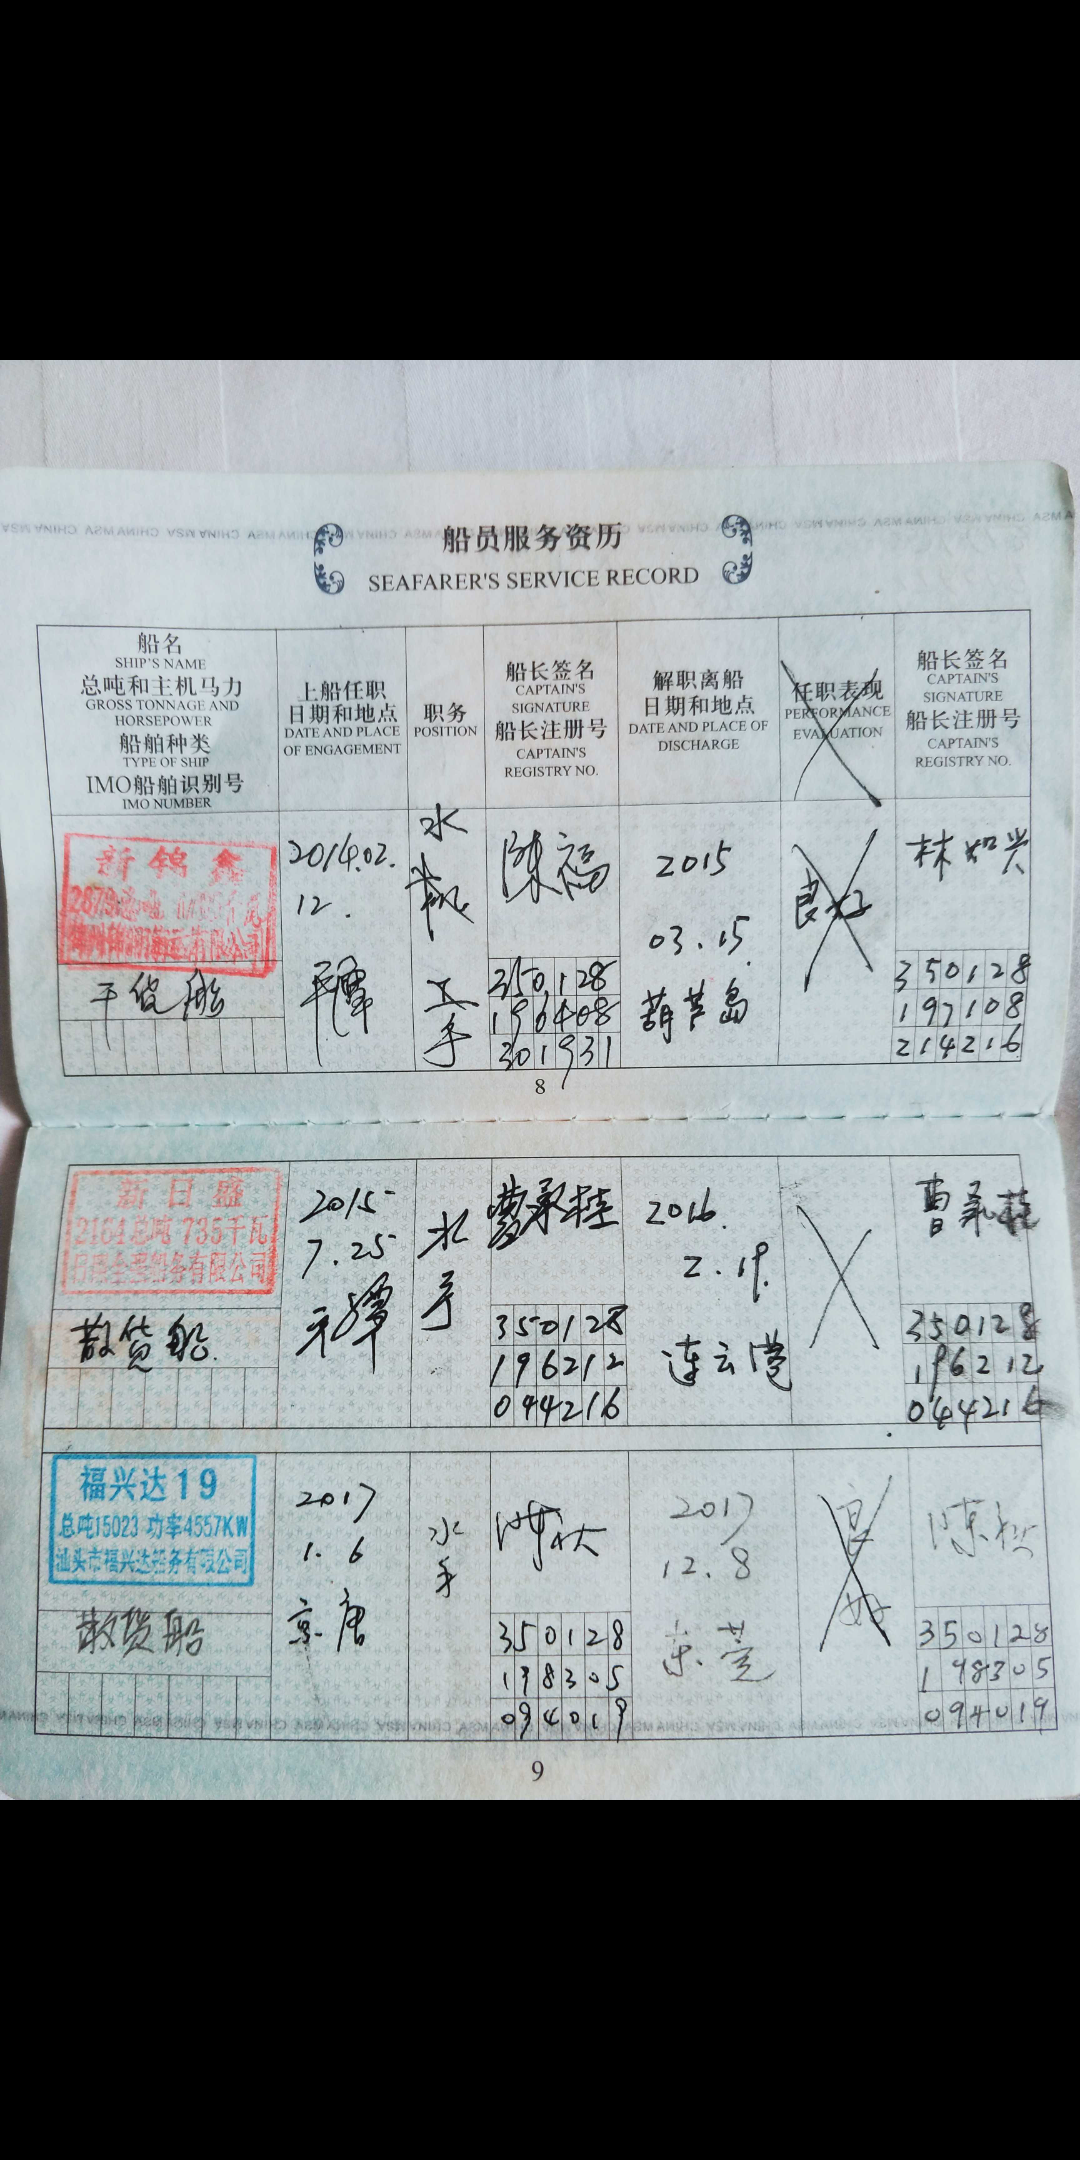 船员服务资历
SEAFARER'S SERVICE RECORD
船名
SHIP'S NAME
总吨和主机马力
GROSS TONNAGE AND
HORSEPOWER
船舶种类
TYPE OF SHIP
IMO船舶识别号
IMO NUMBER
上船任职
日期和地点
DATE AND PLACE
OF ENGAGEMENT
职务
POSITION
船长签名
CAPTAIN'S
SIGNATURE
船长注册号
CAPTAIN'S
REGISTRY NO.
解职离船
日期和地点
DATE AND PLACE OF
DISCHARGE
任职表现
PERFORMANCE
EVALUATION
船长签名
CAPTAIN'S
SIGNATURE
船长注册号
CAPTAIN'S
REGISTRY NO.
新锦鑫
干货船
2014.02.
12.
平潭
水
手
陈福
350128
196408
301931
2015
03.15
葫芦岛
良好
林如兴
350128
197108
214216
8
新日盛
2164总吨 735千瓦
船务有限公司
散货船
2015
7.25
平潭
水
手
曹承桂
350128
196212
044216
2016.
2.19.
连云港
曹承桂
350128
196212
044216
福兴达19
总吨15023 功率4557KW
汕头市福兴达船务有限公司
散货船
2017
1.6
京唐
水
手
350128
198305
094019
2017
12.8
东莞
良
好
陈
350128
198305
094019
9